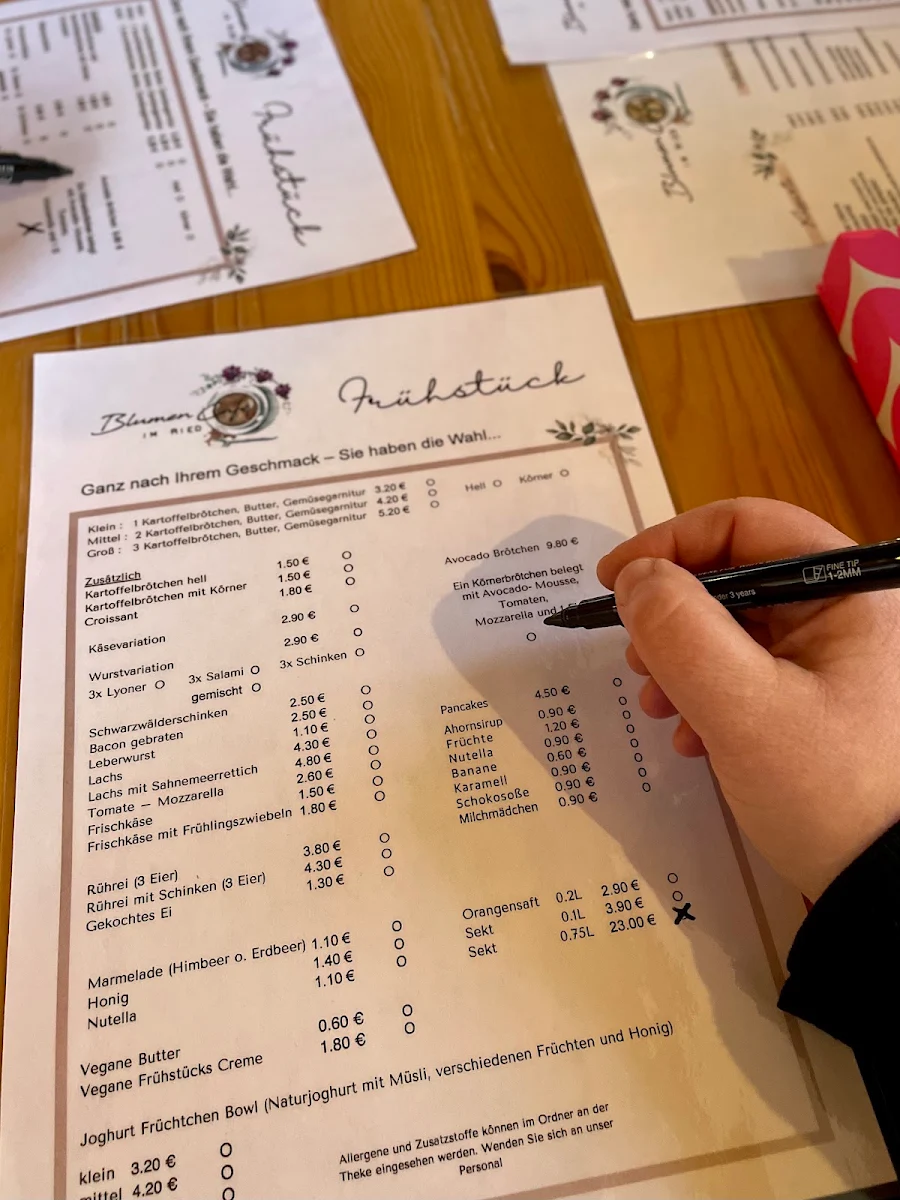 Frühstück
Blumen
IM RIED
Frühstück
Ganz nach Ihrem Geschmack – Sie haben die Wahl...
Klein : 1 Kartoffelbrötchen, Butter, Gemüsegarnitur 3.20 € O Hell O Körner O
Mittel : 2 Kartoffelbrötchen, Butter, Gemüsegarnitur 4.20 € O
Groß : 3 Kartoffelbrötchen, Butter, Gemüsegarnitur 5.20 € O
Zusätzlich
Kartoffelbrötchen hell 1.50 € O
Kartoffelbrötchen mit Körner 1.50 € O
Croissant 1.80 € O
Käsevariation 2.90 € O
Wurstvariation 2.90 € O
3x Lyoner O 3x Salami O 3x Schinken O
gemischt O
Schwarzwälderschinken 2.50 € O
Bacon gebraten 2.50 € O
Leberwurst 1.10 € O
Lachs 4.30 € O
Lachs mit Sahnemeerrettich 4.80 € O
Tomate – Mozzarella 2.60 € O
Frischkäse 1.50 € O
Frischkäse mit Frühlingszwiebeln 1.80 € O
Rührei (3 Eier) 3.80 € O
Rührei mit Schinken (3 Eier) 4.30 € O
Gekochtes Ei 1.30 € O
Marmelade (Himbeer o. Erdbeer) 1.10 € O
Honig 1.40 € O
Nutella 1.10 € O
Vegane Butter 0.60 € O
Vegane Frühstücks Creme 1.80 € O
Avocado Brötchen 9.80 €
Ein Körnerbrötchen belegt
mit Avocado- Mousse,
Tomaten,
Mozzarella und
O
Pancakes 4.50 € O
Ahornsirup 0.90 € O
Früchte 1.20 € O
Nutella 0.90 € O
Banane 0.60 € O
Karamell 0.90 € O
Schokosoße 0.90 € O
Milchmädchen 0.90 €
Orangensaft 0.2L 2.90 € O
Sekt 0.1L 3.90 € O
Sekt 0.75L 23.00 € X
Joghurt Früchtchen Bowl (Naturjoghurt mit Müsli, verschiedenen Früchten und Honig)
klein 3.20 € O
mittel 4.20 € O
O
Allergene und Zusatzstoffe können im Ordner an der
Theke eingesehen werden. Wenden Sie sich an unser
Personal
FINE TIP
1-2MM